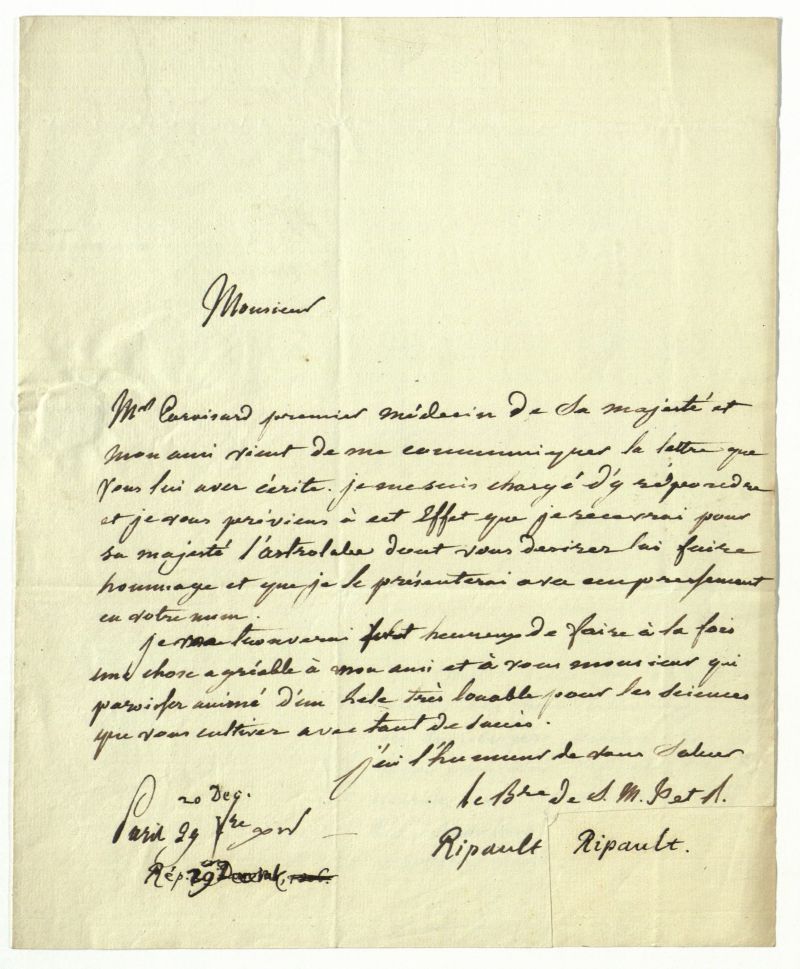 Monsieur
Mr Corvisard premier médecin de Sa majesté et
mon ami vient de me communiquer la lettre que
vous lui avez écrite. je me suis chargé d'y répondre
et je vous préviens à cet Effet que je recevrai pour
sa majesté l'astrolabe dont vous desirez lui faire
hommage et que je le présenterai avec empressement
en votre nom.
je me trouverai fort heureux de faire à la fois
une chose agréable à mon ami et à vous monsieur qui
paroissez animé d'un zele très louable pour les sciences
que vous cultivez avec tant de succès.
j'ai l'honneur de vous Saluer
le Bre de S. M. I et R.
20 Dec.
Paris 29 fre
Ripault Ripault.
Rép. 29